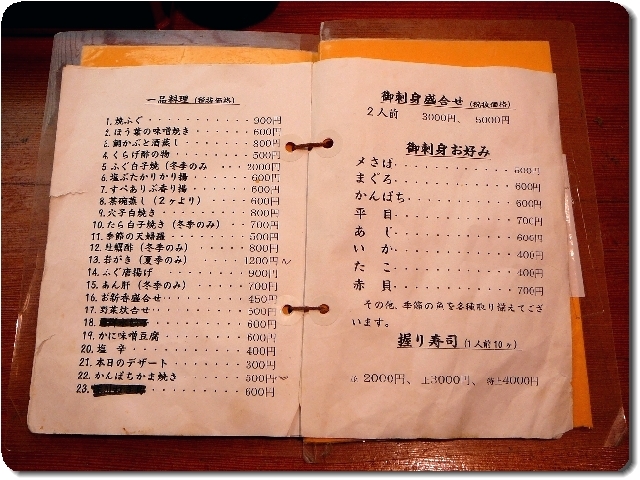 一品料理 (税抜価格)
1. 焼ふぐ 900円
2. ほう葉の味噌焼き 600円
3. 鯛かぶと酒蒸し 800円
4. くらげ酢の物 500円
5 ふぐ白子焼 (冬季のみ 2000円
6. 塩ぶたかりかり揚 600円
7. すべありぶ香り揚 600円
8. 茶碗蒸し (2ヶより) 600円
9. 穴子白焼き 800円
10. たら白子焼き (冬季のみ) 700円
11. 季節の天婦羅 500円
12. 生蠣酢 (冬季のみ) 800円
13. 岩がき (夏季のみ) 1200円
14. ふぐ唐揚げ 900円
15. あん肝 (冬季のみ) 700円
16. お新香盛合せ 450円
17. 野菜炊合せ 500円
18. 600円
19. かに味噌豆腐 600円
20. 塩辛 400円
21. 本日のデザート 300円
22. かんぱちかま焼き 500円
23. 600円
御刺身盛合せ (税抜価格)
2人前 3000円、 5000円
御刺身お好み
メさば 600円
まぐろ 600円
かんぱち 600円
平目 700円
あじ 600円
いか 400円
たこ 400円
赤貝 700円
その他、季節の魚を各種取り揃えてござ
います。
握り寿司 (1人前10ヶ)
2000円、 上3000円、 特上4000円